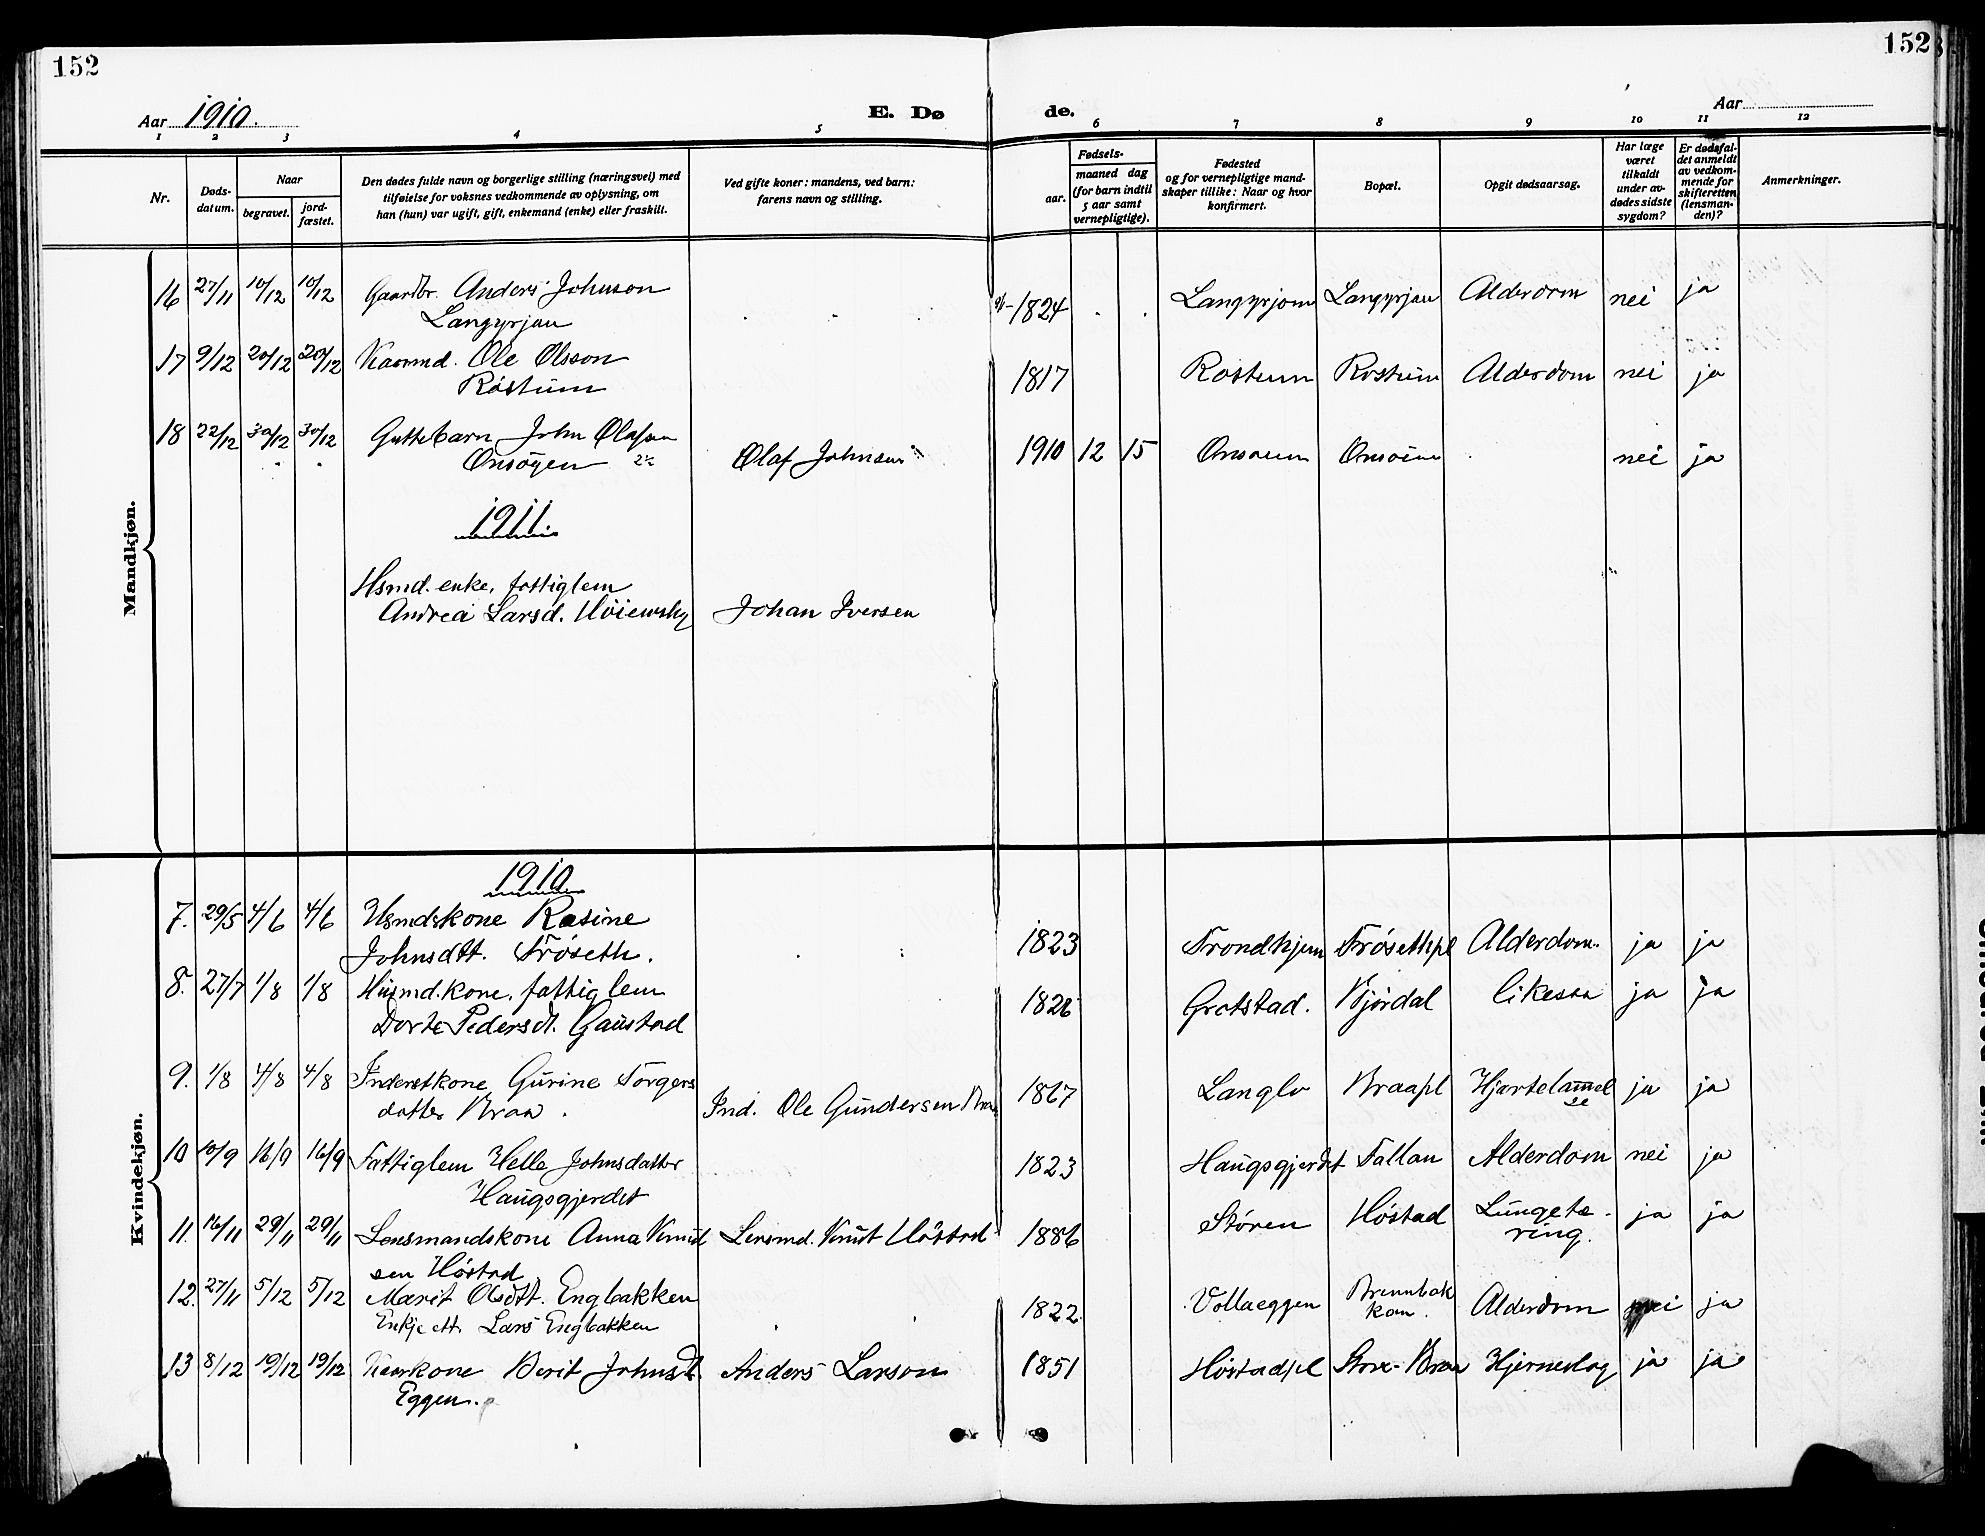 152
152
Aar 1910.
E. Dø
de.
Aar
1 2 3 4 5 6 7 8 9 10 11 12
Nr.
Døds-
datum.
Naar
begravet.
jord-
fæstet.
Den dødes fulde navn og borgerlige stilling (næringsvei) med
tilføielse for voksnes vedkommende av oplysning, om
han (hun) var ugift, gift, enkemand (enke) eller fraskilt.
Ved gifte koner: mandens, ved barn:
farens navn og stilling.
Fødsels-
aar.
maaned dag
(for barn indtil
5 aar samt
vernepligtige).
Fødested
og for vernepligtige mand-
skaper tillike: Naar og hvor
konfirmert.
Bopæl.
Opgit dødsaarsag.
Har læge
været
tilkaldt
under av-
dødes sidste
sygdom?
Er dødsfal-
det anmeldt
av vedkom-
mende for
skifteretten
(lensman-
den)?
Anmerkninger.
Mandkjøn.
16 27/11 10/12 10/12 Gaardbr. Anders Johnson 1824 Langyrjom Langyrjau Alderdom nei ja
Langyrjau
17 9/12 20/12 20/12 Kaarmd. Ole Olsson 1817 Rostum Rostum Alderdom nei ja
Röstum
18 22/12 30/12 30/12 Guttebarn John Olafson Olaf Johnsen 1910 12 15 Onsoien Onsoien nei ja
Onsögen
1911.
Hsmd. enke, fattiglem
Andrea Larsd. Johan Iversen
Kvindekjøn.
1910
7. 29/5 4/6 4/6 Husmdskone Rasine 1823 Trondhjem Frösethpl Alderdom. ja ja
Johnsdtt. Fröseth.
8. 27/7 1/8 1/8 Husmd.kone, fattiglem 1826 Grotstad. Bjórdal ja ja
Dorte Pedersdt. Gaustad
9. 1/8 4/8 4/8 Inderstkone Gurine Torgers Ind. Ole Gundersen Braa 1867 Langlo Braapl Hjertelammel ja ja
datter Braa. se
10 10/9 16/9 16/9 Fattiglem Helle Johnsdatter 1823 Haugsgjerdet Fallan Alderdom nei ja
Haugsgjerdet
11. 16/11 29/11 29/11 Lensmandskone Anna Knud Lensmd. Knut Höstad 1886 Stören Höstad Lungetæ- ja ja
sen Höstad ring.
12. 27/11 5/12 5/12 Marit Olsdtt. Engbakken 1822 Vollaeggen Brennbak Alderdom nei ja
Enkje ett. Lars Engbakken kan.
13 8/12 19/12 19/12 Kaarkone Berit Johnsdt. Anders Larson 1851 Höstadpl Store-Braa Hjerneslag ja ja
Eggen.